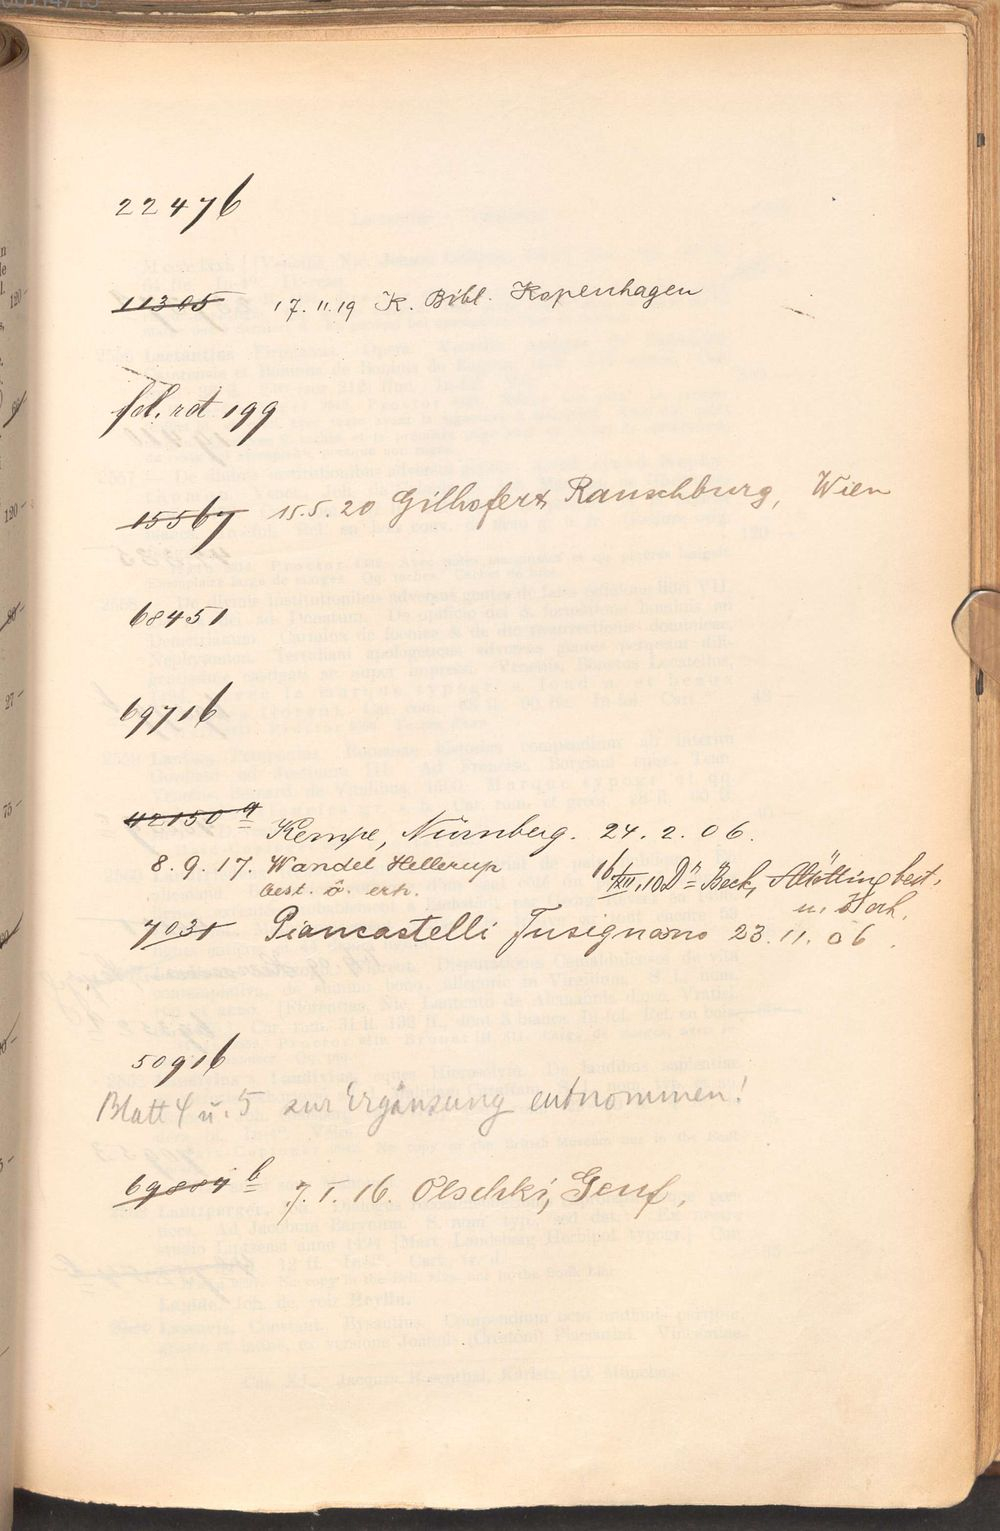 22476
11305 17.11.19 K. Bibl. Kopenhagen
fol. rot 199
15567 15.5.20 Gilhofer & Ranschburg, Wien
68451
69716
42150 a
Kempe, Nürnberg. 24.2.06.
8.9.17. Wandel Hellerup
best. ö. erh.
16/XII.10 Dr Beck, Altötting best.
u. erh.
7031 Piancastelli Fusignano 23.11.06.
50916
Blatt 4 u. 5 zur Ergänzung entnommen!
69887 b 7.I.16. Olschki, Genf,